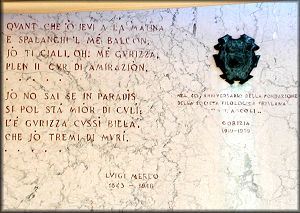 QVANT CHE O JEVI A LA MATINA
E SPALANCHI IL MÊ BALCON,
JO TI CIALI, OH! MÊ GURIZZA,
PLEN IL CÛR DI AMIRAZION.
. . .
JO NO SAI SE IN PARADIS
SI POL STÂ MIOR DI CULÌ:
L'È GURIZZA CUSSÌ BIELA,
CHE JO TREMI DI MURÎ.
. . .
LUIGI MERLO
NEL 60° ANNIVERSARIO DELLA FONDAZIONE
DELLA SOCIETÀ FILOLOGICA FRIULANA
ASCOLI
GORIZIA
1919-1979